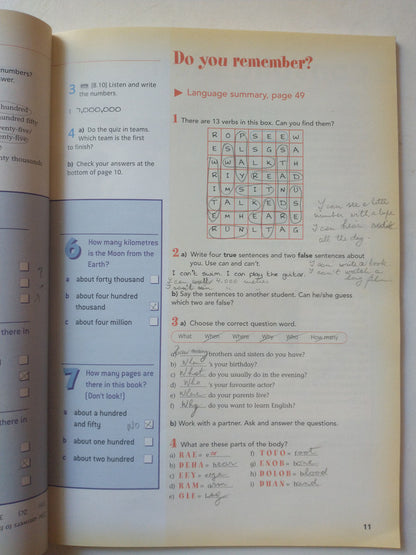 numbers?
hundred
twenty-five
nty thousands
there in
3 [8.10] Listen and write
the numbers.
1 7,000,000
4 a) Do the quiz in teams.
Which team is the first
to finish?
b) Check your answers at the
bottom of page 10.
6 How many kilometres
is the Moon from the
Earth?
a about forty thousand
b about four hundred
thousand
c about four million
7 How many pages are
there in this book?
(Don't look!)
a about a hundred
and fifty NO
b about one hundred
c about two hundred
Do you remember?
Language summary, page 49
1 There are 13 verbs in this box. Can you find them?
R O P S E E W
E S L S G S A
W W A L K T H
R I Y R E A D
I M S I T N U
T A L K E D S
E M H E A R E
R U N L T A G
I can see a
number with a
I can hear
all the day.
2 a) Write four true sentences and two false sentences about
you. Use can and can't.
I can write a book
I can't swim. I can play the guitar.
I can't watch a
long film
I can 4.000 metres
b) Say the sentences to another student. Can he/she guess
which two are false?
3 a) Choose the correct question word.
What When Where Why Who How many
a) How many brothers and sisters do you have?
b) When 's your birthday?
c) What do you usually do in the evening?
d) Who 's your favourite actor?
e) Where do your parents live?
f) Why do you want to learn English?
b) Work with a partner. Ask and answer the questions.
4 What are these parts of the body?
a) RAE = ear
f) TOFO = foot
b) DEHA =
g) ENOB = bone
c) EEY = eye
h) DOLOB = blood
d) RAM = arm
i) DHAN = hand
e) GLE = leg
11